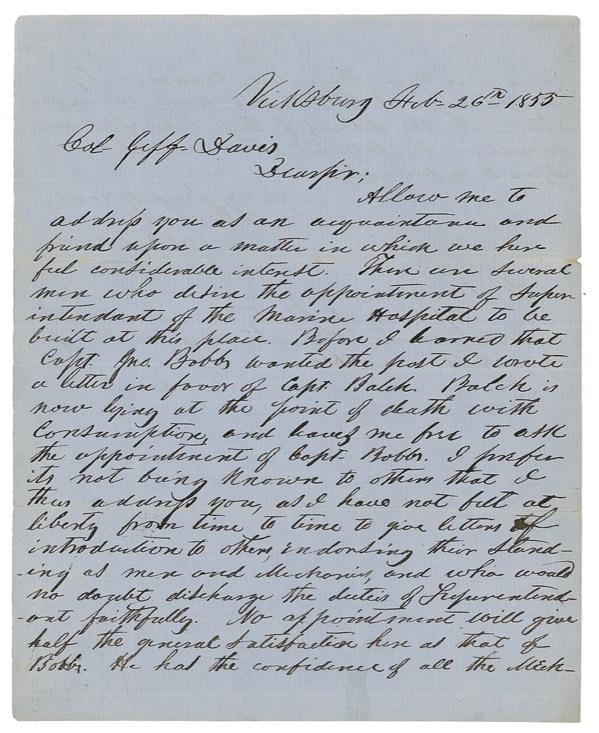 Vicksburg Feb- 26th 1855
Col- Jeff- Davis
Dear Sir;
Allow me to
address you as an acquaintance and
friend upon a matter in which we here
feel considerable interest. There are several
men who desire the appointment of Super-
intendant of the Marine Hospital to be
built at this place. Before I learned that
Capt. Jno. Bobbs wanted the post I wrote
a letter in favor of Capt. Balch. Balch is
now lying at the point of death with
Consumption, and leaves me free to ask
the appointment of Capt Bobbs. I prefer
its not being known to others that I
thus address you, as I have not felt at
liberty from time to time to give letters of
introduction to others, endorsing their stand-
-ing as men and Mechanics, and who would
no doubt discharge the duties of Superintend-
-ant faithfully. No appointment will give
half the general satisfaction here as that of
Bobbs. He has the confidence of all the Mech-